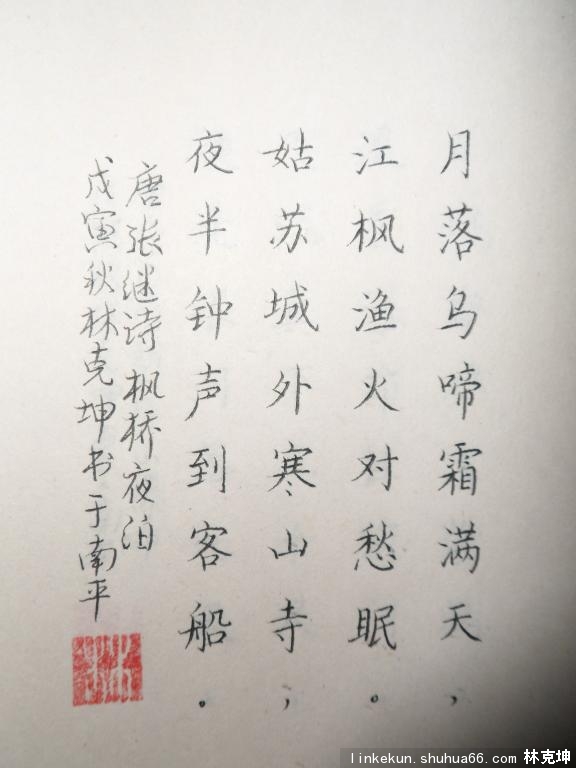 月落乌啼霜满天，
江枫渔火对愁眠。
姑苏城外寒山寺，
夜半钟声到客船。
唐张继诗枫桥夜泊
戊寅秋林克坤书于南平
linkekun.shuhua66.com 林克坤